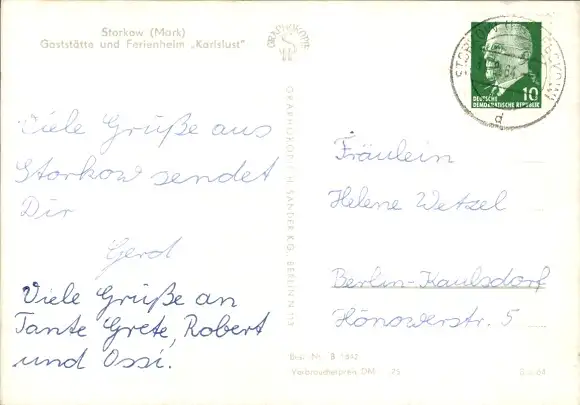 Storkow (Mark)
Gaststätte und Ferienheim „Karlslust"
GRAPHOKOPIE
Viele Grüße aus
Storkow sendet
Dir
Gerd
Viele Grüße an
Tante Grete, Robert
und Ossi.
GRAPHOKOPIE H. SANDER KG. BERLIN N 113
STORKOW
d
10
DEUTSCHE
DEMOKRATISCHE REPUBLIK
Fräulein
Helene Wetzel
Berlin-Kaulsdorf
Hönowerstr. 5
Best. Nr. B
Verbraucherpreis DM